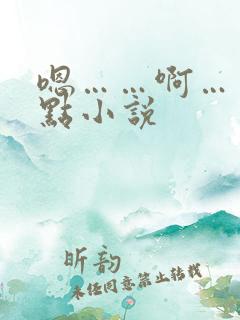 嗯……啊…
點小說
昕韵
未经同意禁止转载